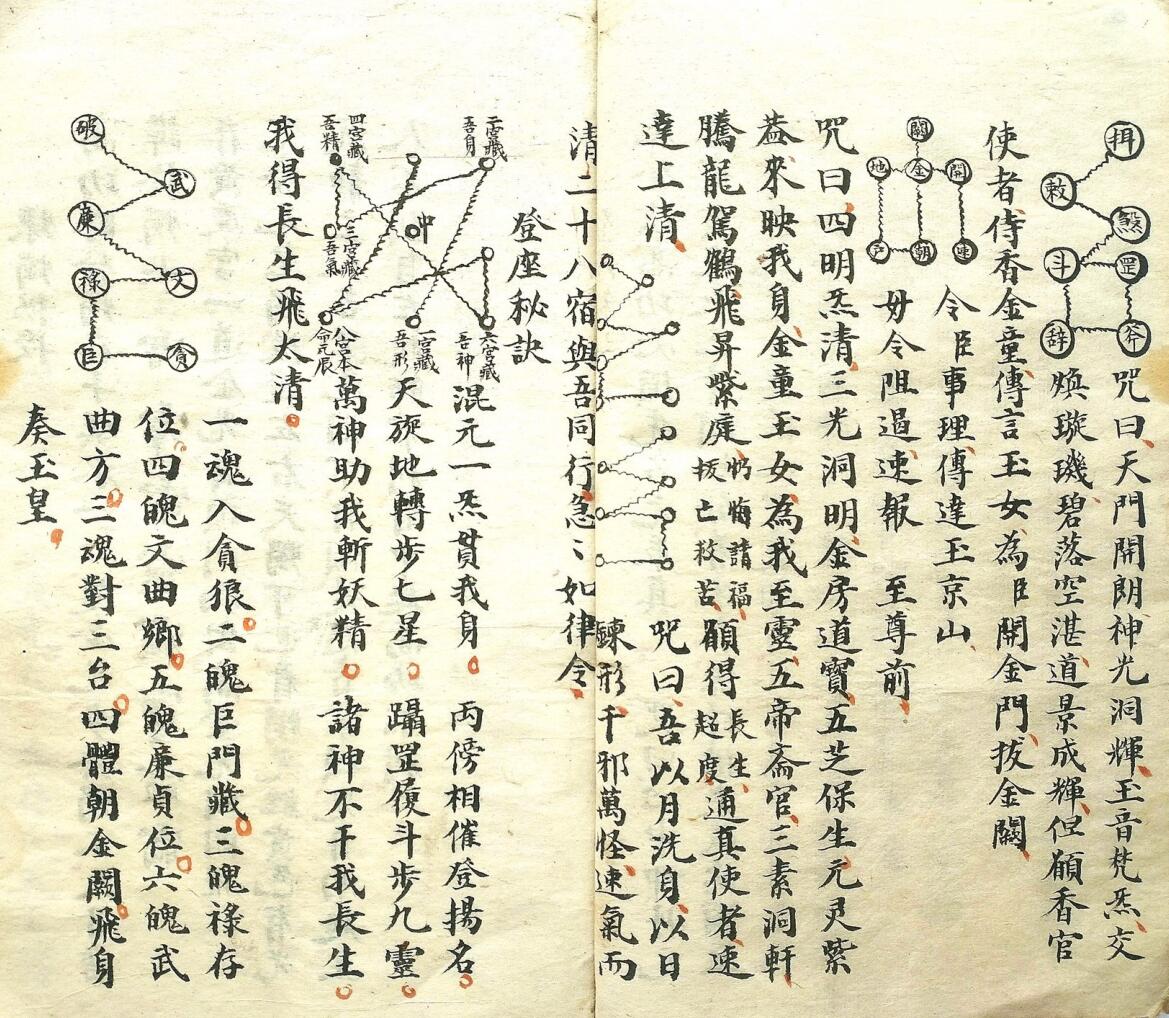 拜
敕
煞
斗
罡
辭
咒曰天門開朗神光洞輝玉音梵炁交
煥璇璣碧落空湛道景成輝但願香官
使者侍香金童傳言玉女為臣開金門拔金闕
令臣事理傳達玉京山
關
地
金
開
戶
朝
毋令阻遏速報 至尊前
咒曰四明炁清三光洞明金房道寶五芝保生元灵紫
葢來映我身金童玉女為我至靈五帝斋官三素洞軒
騰龍駕鶴飛昇紫庭
拔亡救苦
願得
長生
超度
通真使者速
達上清
咒曰吾以月洗身以日
鍊形千邪萬怪速氣而
清二十八宿與吾同行急〻如律令
登座秘訣
二宮藏吾身
六宮藏吾神
一宮藏吾形
三宮藏吾氣
四宮藏吾精
混元一炁貫我身 両傍相催登揚名
天旋地轉步七星 躡罡履斗步九靈
萬神助我斬妖精 諸神不干我長生
我得長生飛太清
破
武
廉
文
祿
巨
貪
一魂入貪狼二魄巨門藏三魄祿存
位四魄文曲鄉五魄廉貞位六魄武
曲方三魂對三台四體朝金闕飛身
奏玉皇